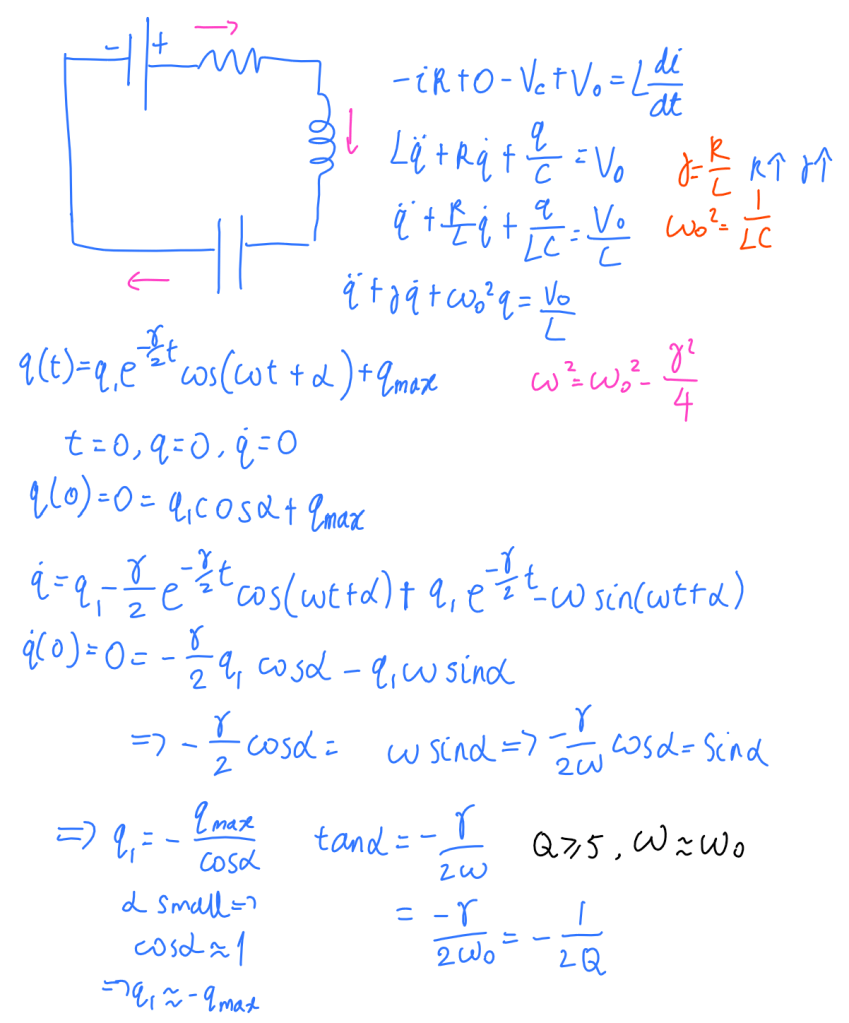 - +
-iR+0-V_c+V_0=L di/dt
Lq̈+Rq̇+q/C=V_0 γ=R/L R↑ γ↑
q̈+R/L q̇+q/LC=V_0/L ω_0²=1/LC
q̈+γq̇+ω_0²q=V_0/L
q(t)=q_1e^{-γ/2 t}cos(ωt+α)+q_max ω²=ω_0²-γ²/4
t=0, q=0, q̇=0
q(0)=0=q_1cosα+q_max
q̇=q_1-γ/2 e^{-γ/2 t}cos(ωt+α)+q_1e^{-γ/2 t}-ωsin(ωt+α)
q̇(0)=0=-γ/2 q_1 cosα-q_1ωsinα
=>-γ/2 cosα= ωsinα=>-γ/2ω cosα=sinα
=>q_1=-q_max/cosα tanα=-γ/2ω Q≥5, ω≈ω_0
α small=> =-γ/2ω_0=-1/2Q
cosα≈1
=>q_1≈-q_max